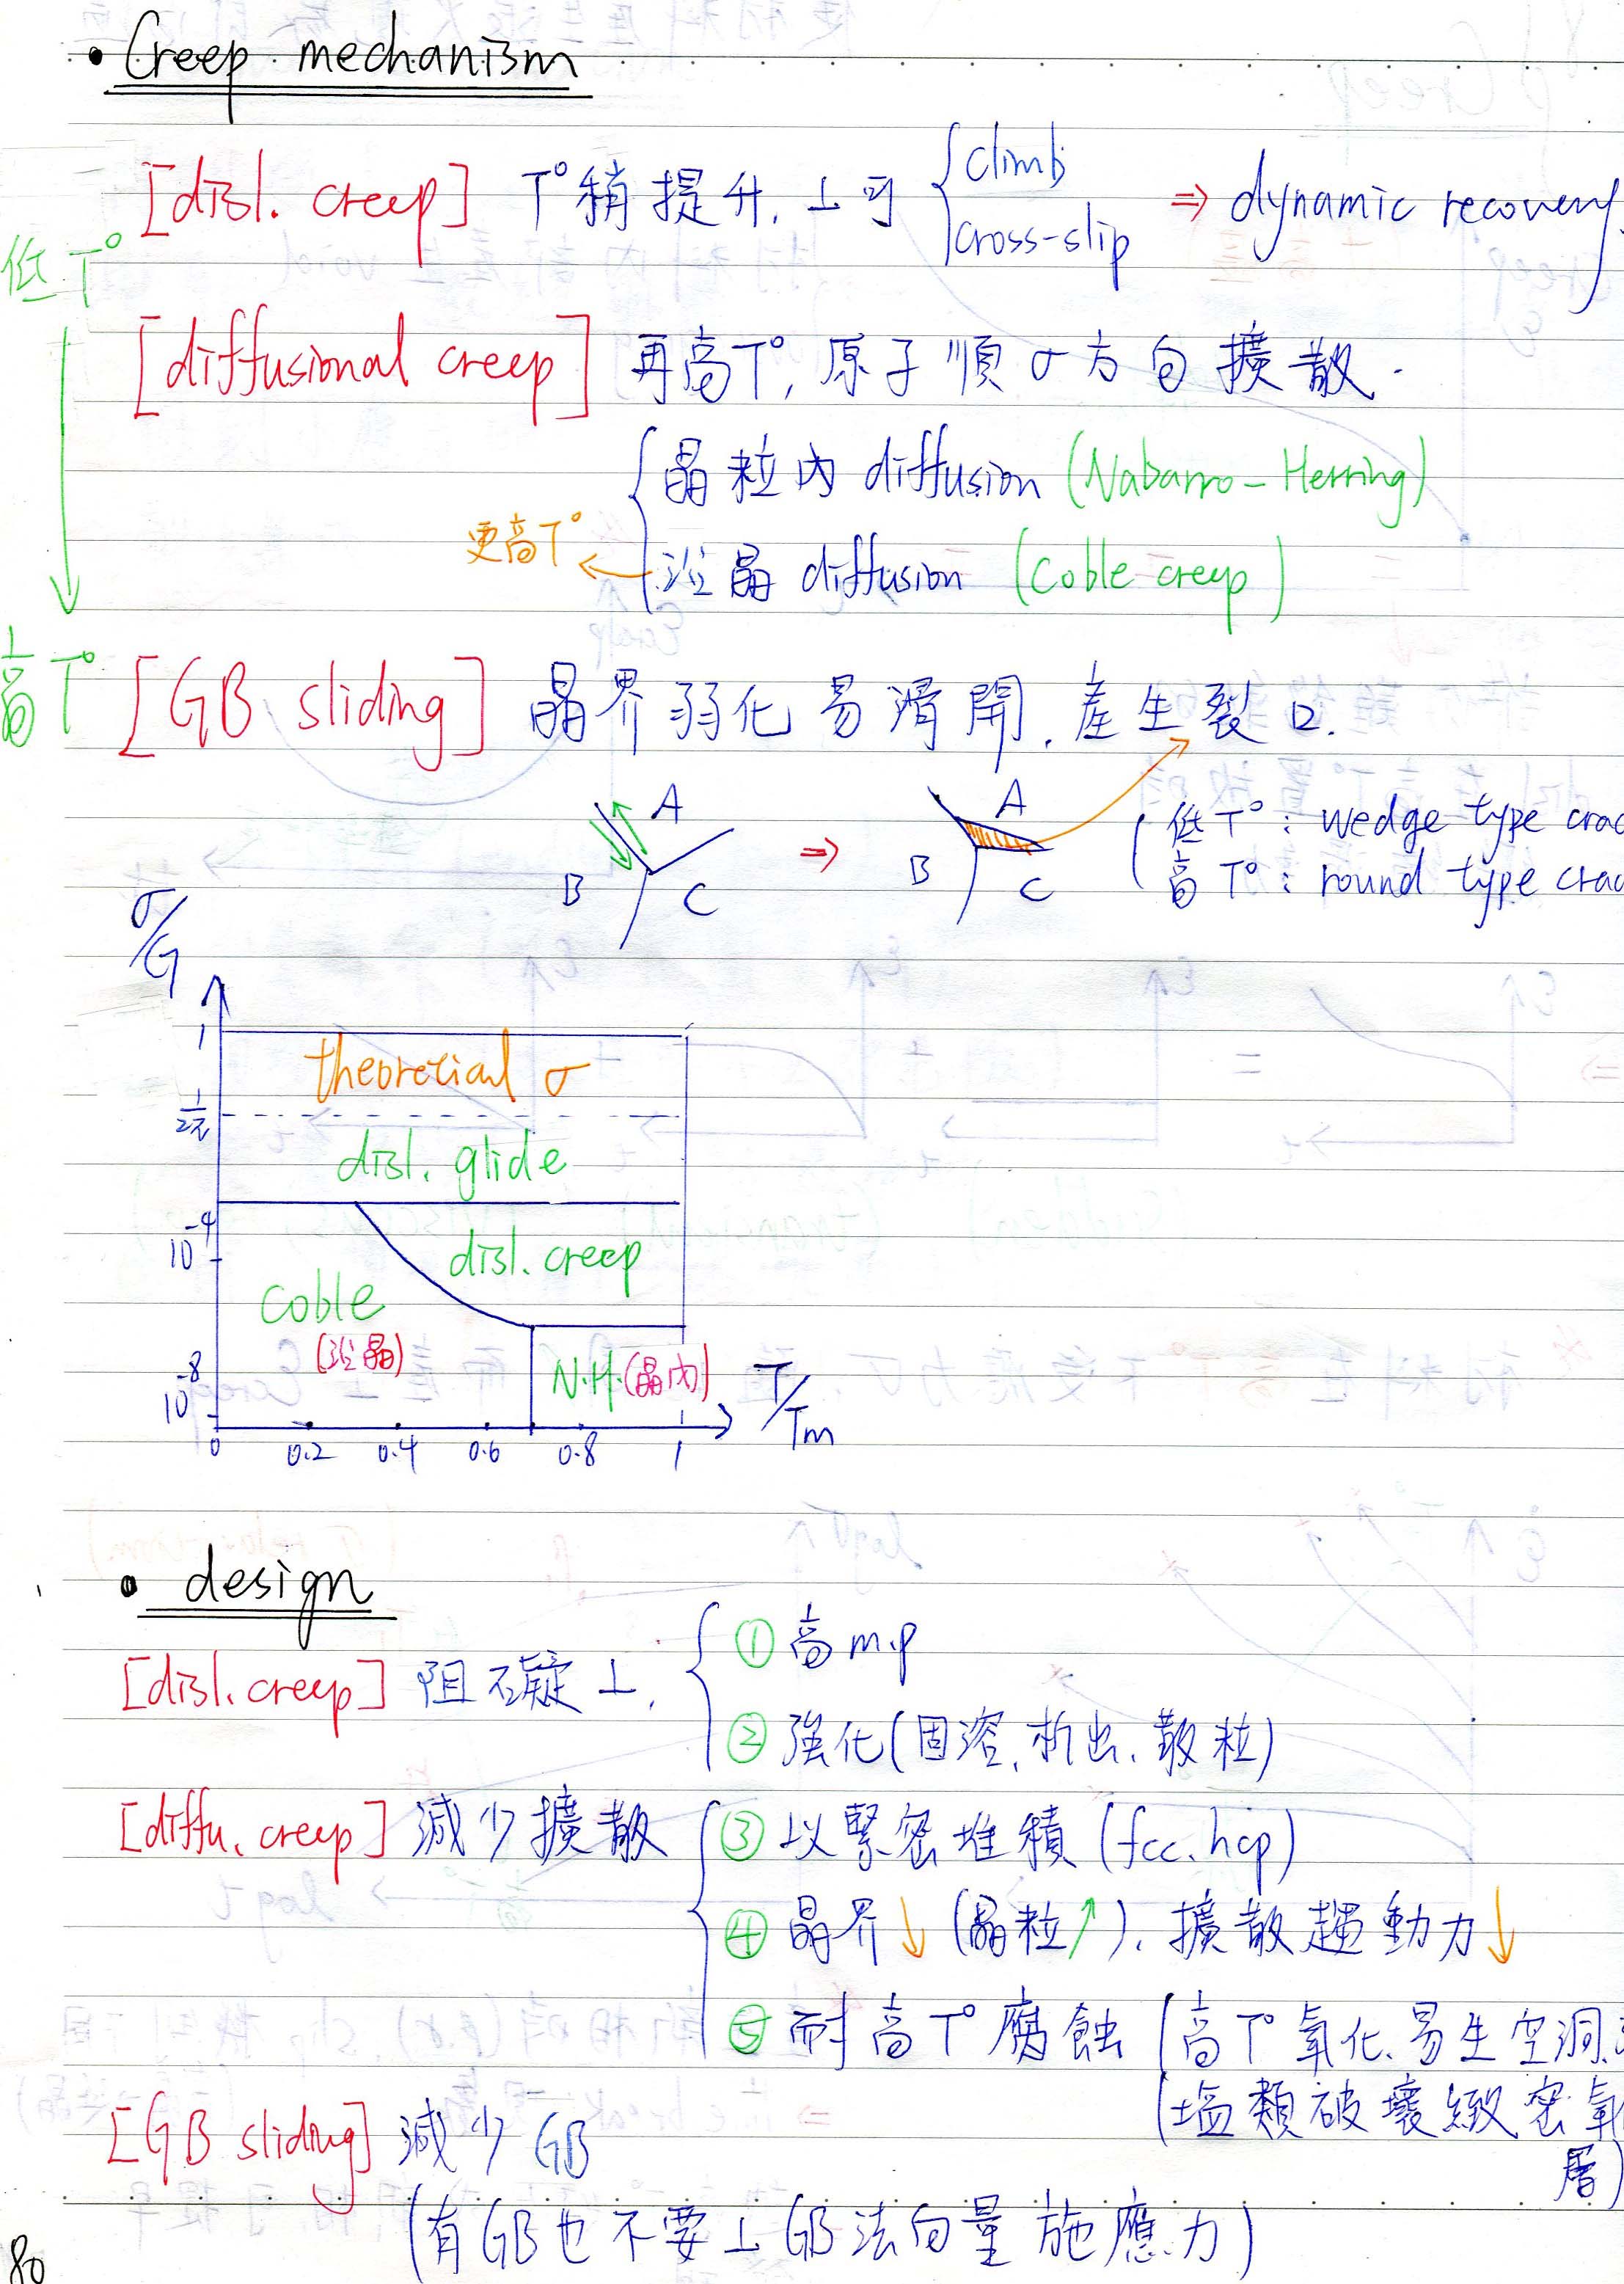 • Creep mechanism
[disl. creep] T°稍提升, ⊥可 { climb
cross-slip ⇒ dynamic recovery
低T°
[diffusional creep] 再高T°, 原子順σ方向擴散.
晶粒內 diffusion (Nabarro-Herring)
更高T° ← 沿晶 diffusion (Coble creep)
高T°
[GB sliding] 晶界弱化易滑開, 產生裂口.
A B C ⇒ A B C
低T°: wedge type crac
高T°: round type crac
σ/G
1
theoretical σ
1/2π
disl. glide
10^-4
disl. creep
Coble
(沿晶)
N.H. (晶內)
10^-8
T/Tm
0 0.2 0.4 0.6 0.8 1
• design
[disl. creep] 阻礙⊥,
① 高m.p
② 強化(固溶, 析出, 散粒)
[diffu. creep] 減少擴散
③ 以緊密堆積 (fcc. hcp)
④ 晶界↓ (晶粒↑), 擴散趨動力↓
⑤ 耐高T°腐蝕 (高T°氧化, 易生空洞
(塩類破壞緻密氧
層)
[GB sliding] 減少GB
(有GB也不要⊥GB法向量施應力)
80